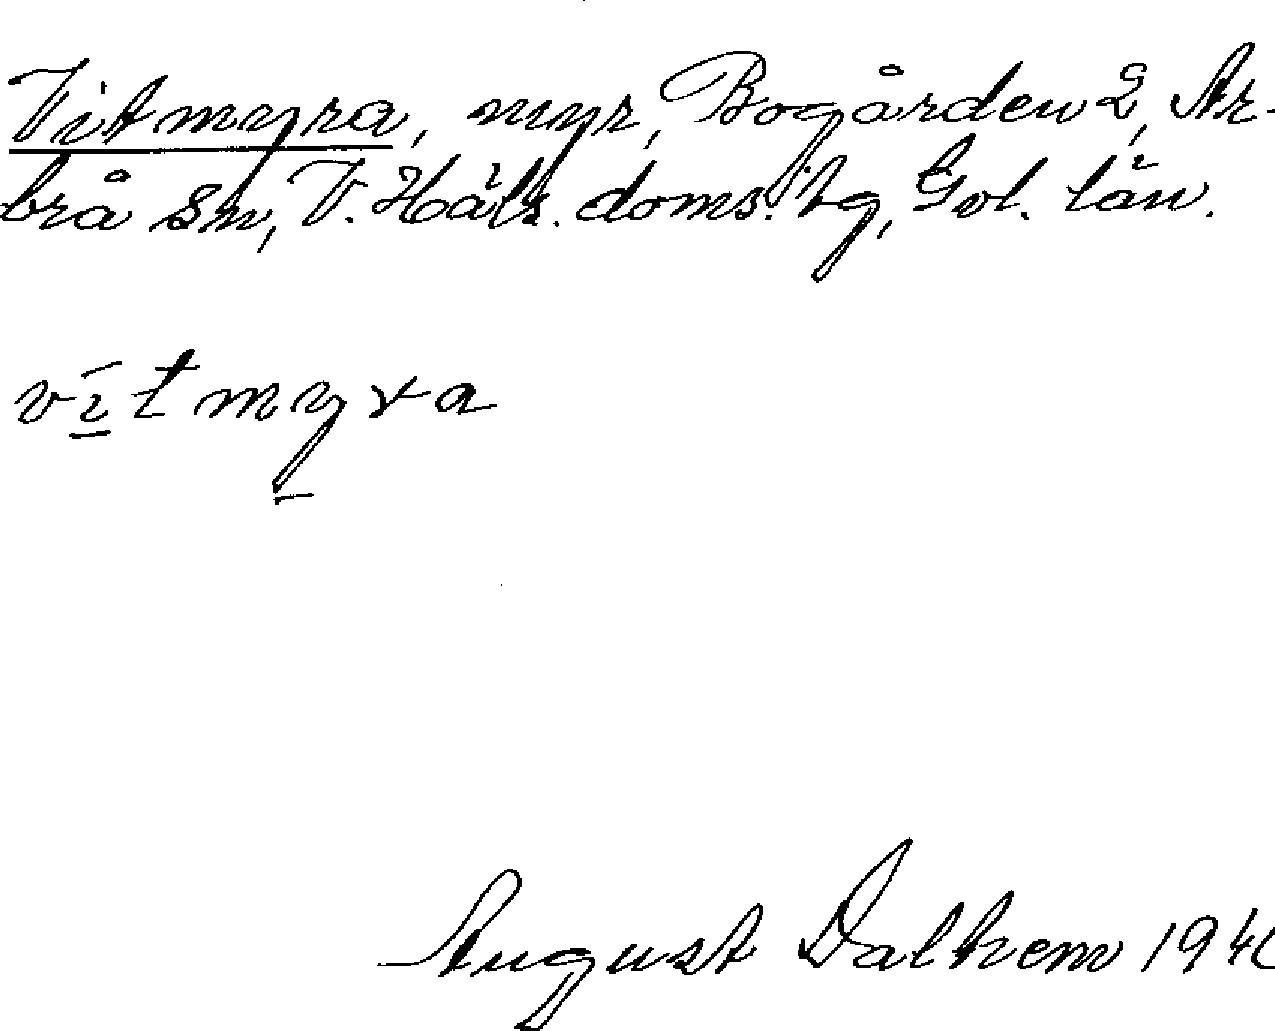 Vitmyra, myr, Bogården 2, Ar-
brå sn, V. Häls. doms. tg, Gvl. län.
vítmyra
August Dalhem